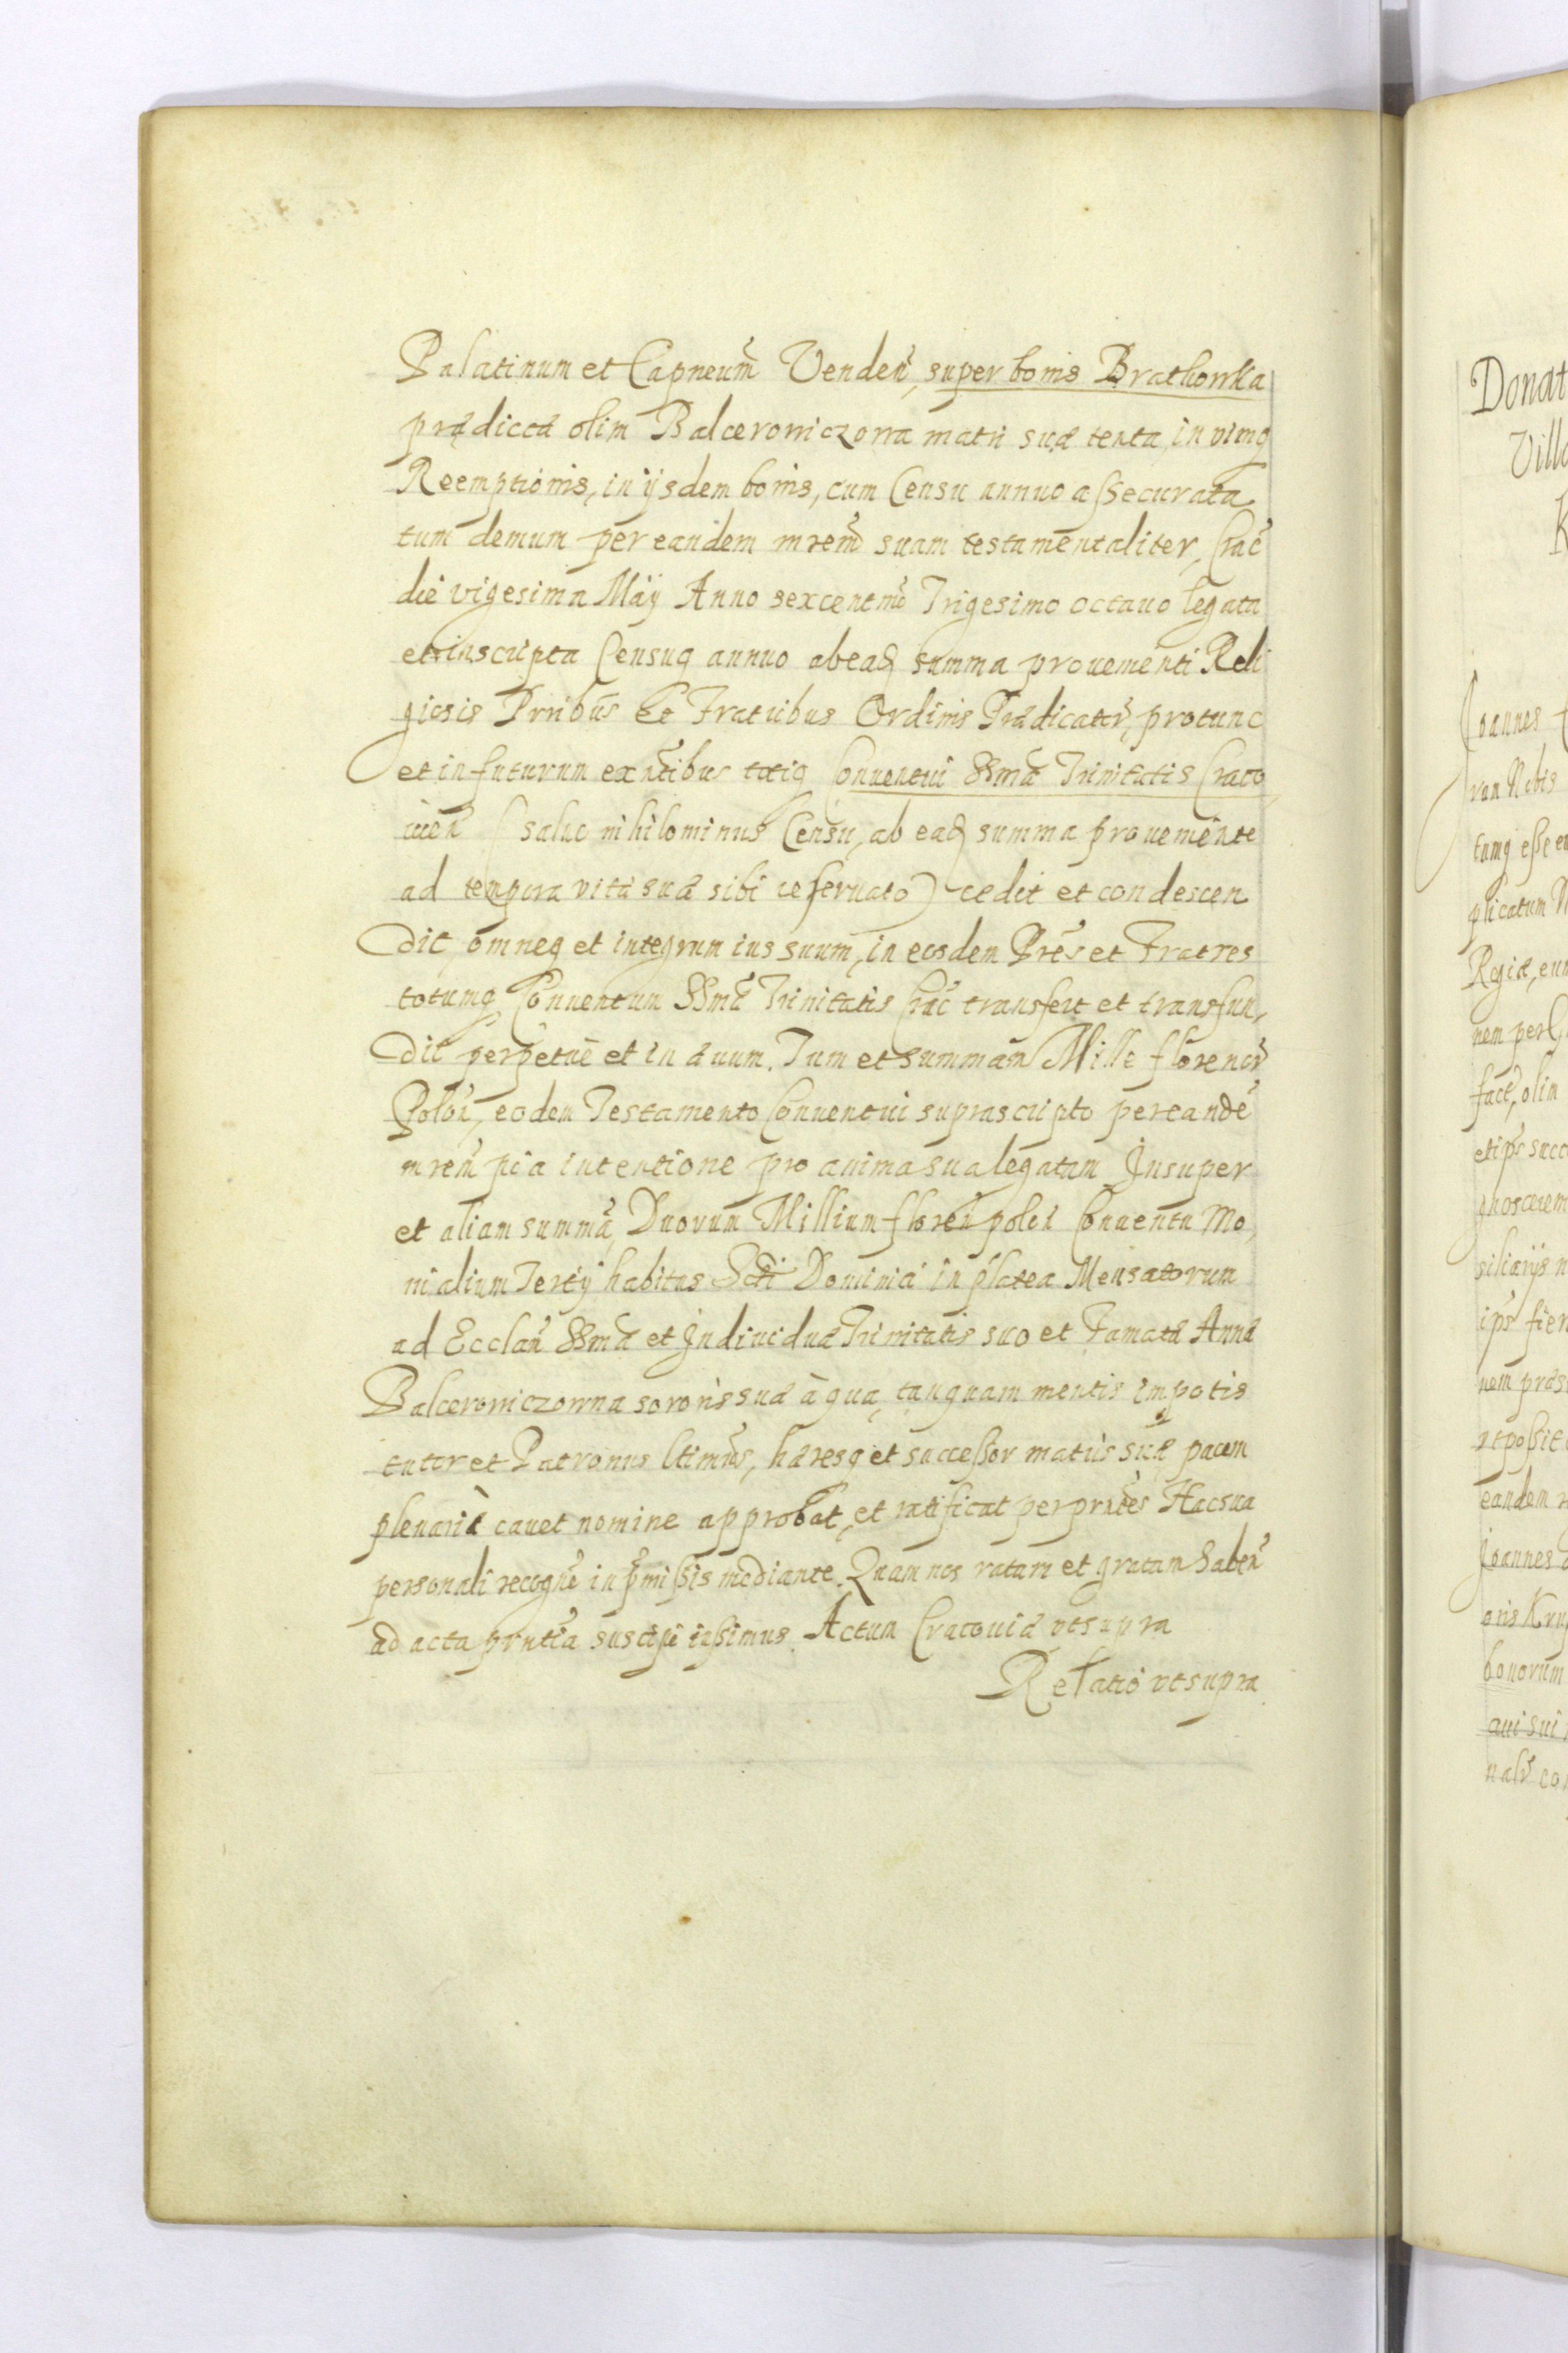 Palatinum et Capneum̃ Venden̄, super bonis Brathowka
prædictæ olim Balcerowiczowa matri suæ
Reemptionis, in ijsdem bonis, cum Censu annuo assecurata
tum demum per eandem mrem̃ suam testamentaliter, Crac̃
die vigesima Maÿ Anno sexcentmõ Trigesimo octauo legata
et inscripta Censuq annuo ab eadꝫ summa prouenienti Reli
giosis Prribus Et Fratribus Ordinis Prædicator̃, protunc
et in futurum exñtibus totiq Conuentui SSmæ Trinitatis Craco
uień (saluo nihilominus Censu, ab eadꝫ summa proueniente
ad tempora vitæ suæ sibi reseruato) cedit et condescen
dit, omneq et integrum ius suum, in eosdem Pr̃es et Fratres
totumq Conuentum SSmæ Trinitatis Crac̃ transfert et transfun,
dit perpetuè et in æuum. Tum et summam Mille florenor̃
Polon̄, eodem Testamento Conuentui suprascripto per eandẽ
mrem̃ pia intentione pro anima sua legatam Insuper
et aliam summã, Duorum Millium floreń poloń Conuentu Mo,
nialium Tertÿ habitus Scti Dominici in platea Mensatorum
ad Ecclam̃ SSmæ et Indiuiduæ Trinitatis suo et Famatæ Annæ
Balcerowiczowna sororis suæ à qua, tanquam mentis impotis
tutor et Patronus ltimus, hæresq et successor matris suæ pacem
plenariè cauet nomine approbat, et ratificat per prñtes Hac sua
personali recogñe in p̃missis mediante. Quam nos ratam et gratam haben̄
ad acta prñtia suscipi iussimus. Actum Cracouiæ vt supra
Relatio vt supra
Donat
Villa
K
Joannes
ron Nobis
tumq esse
plicatum
Regiæ, eun
nem per
fact, olim
et ips succ
gnoscerem
siliarijs n
ips fier
nem præs
vt possit
eandem
Joannes
oris
bonorum
aui sui